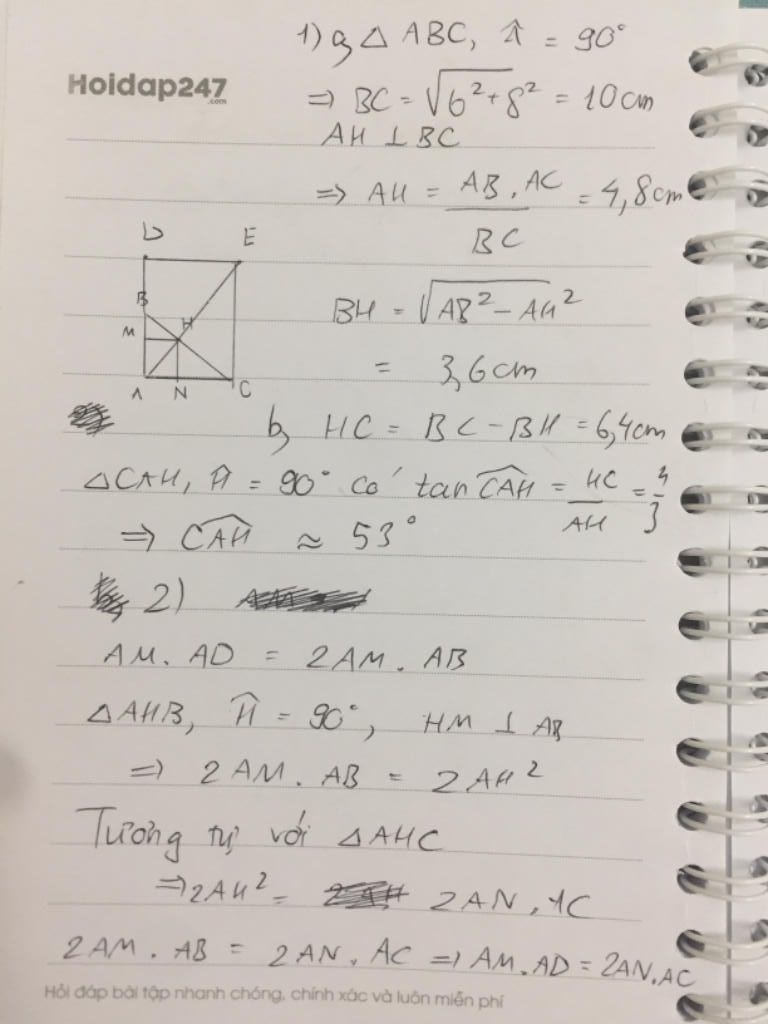 1) a, △ ABC, Â = 90°
Hoidap247
.com
⇒ BC = √6² + 8² = 10cm
AH ⊥ BC
⇒ AH = AB . AC / BC = 4,8cm
D E
B
M H
A N C
BH = √AB² − AH²
= 3,6cm
b, HC = BC − BH = 6,4cm
△CAH, Ĥ = 90° có tan CAH = HC / AH = 4/3
⇒ CAH ≈ 53°
2)
AM . AD = 2AM . AB
△AHB, Ĥ = 90°, HM ⊥ AB
⇒ 2AM . AB = 2AH²
Tương tự với △AHC
⇒ 2AH² = 2AN . AC
2AM . AB = 2AN . AC ⇒ AM . AD = 2AN . AC
Hỏi đáp bài tập nhanh chóng, chính xác và luôn miễn phí